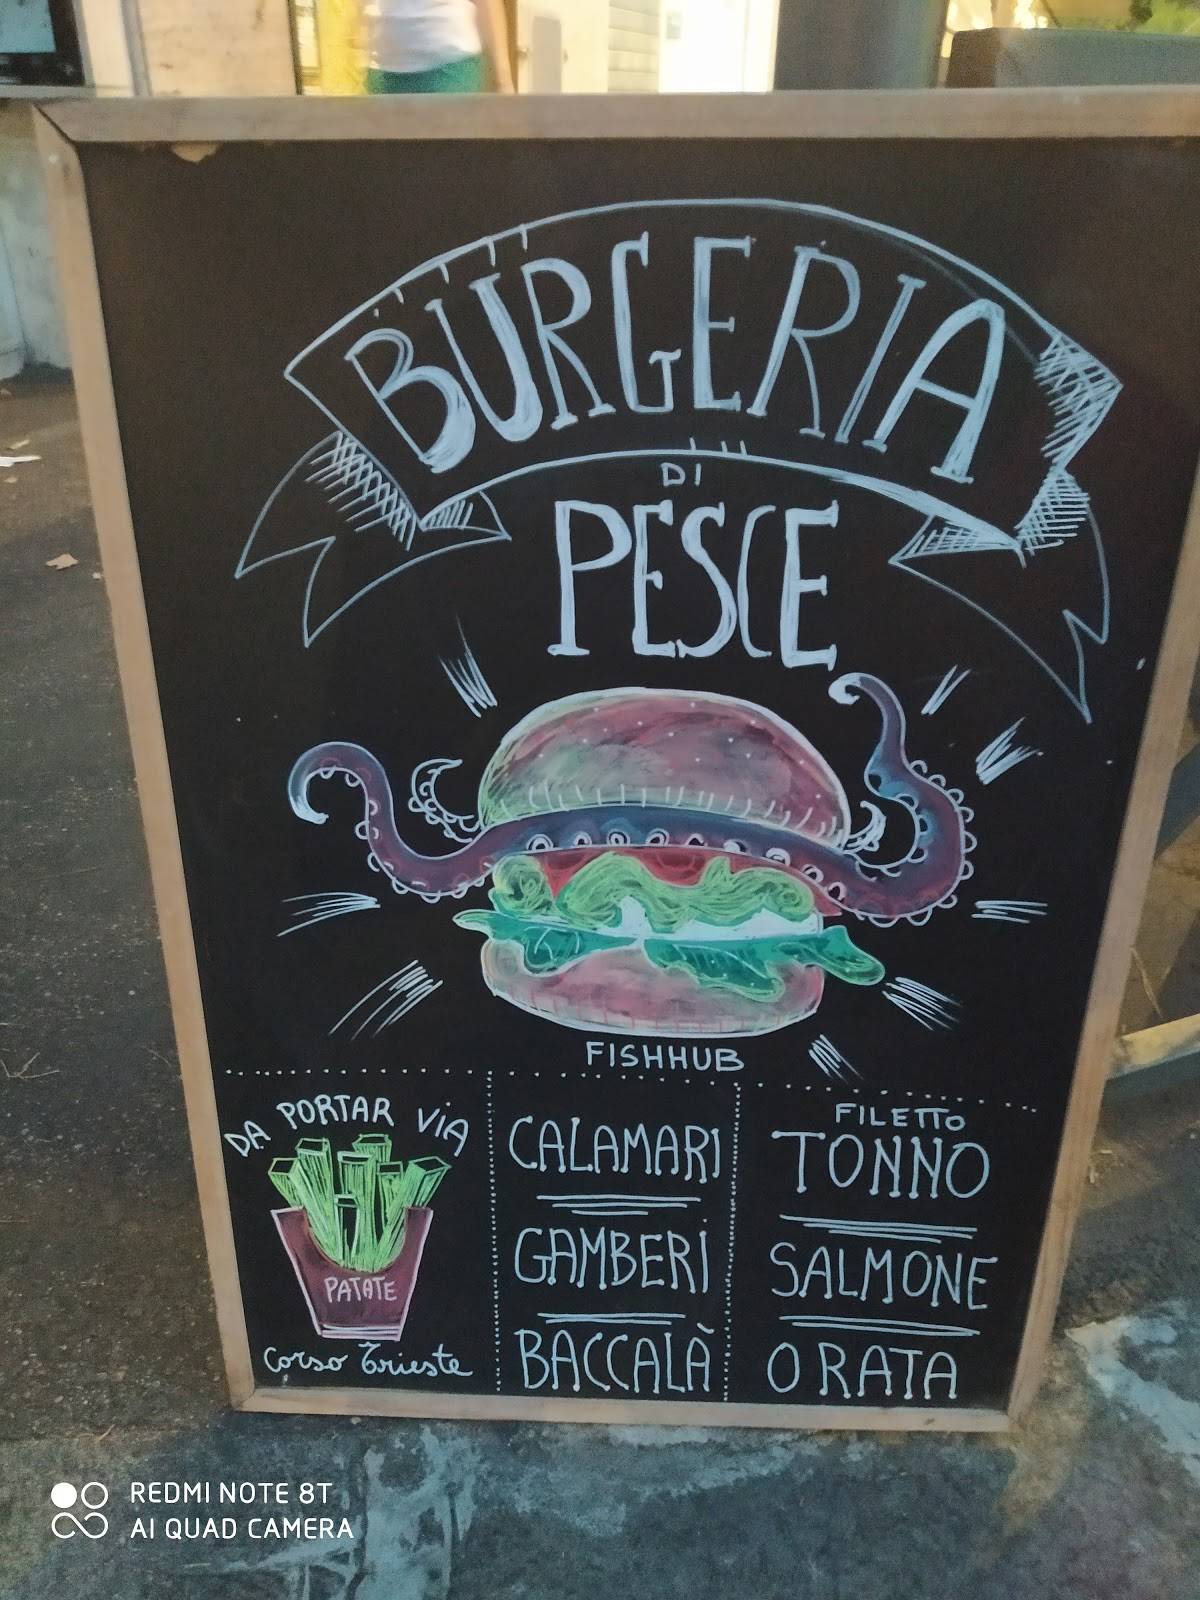 BURGERIA
DI
PESCE
FISHHUB
DA PORTAR VIA
PATATE
Corso Trieste
CALAMARI
GAMBERI
BACCALÀ
FILETTO
TONNO
SALMONE
ORATA
REDMI NOTE 8T
AI QUAD CAMERA